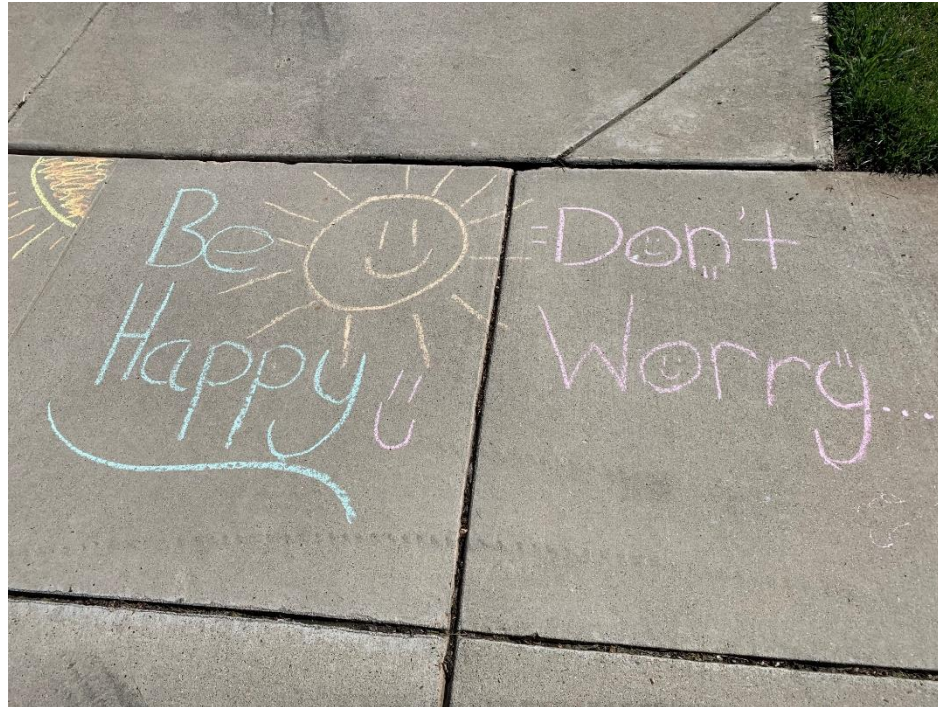 Be
Happy
Don't
Worry...